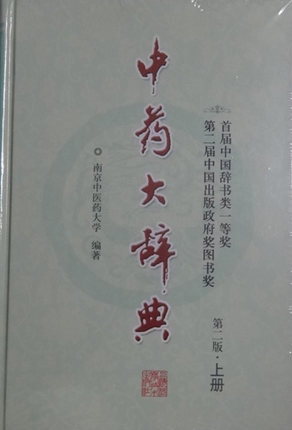 首届中国辞书类一等奖
第二届中国出版政府奖图书奖
中药大辞典
南京中医药大学 编著
第二版·上册